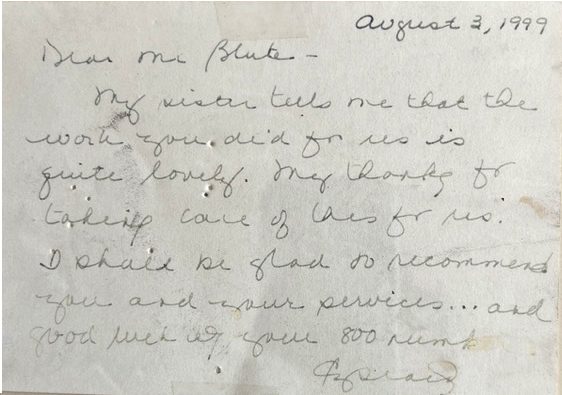 August 3, 1999
Dear Mr Blute -
My sister tells me that the
work you did for us is
quite lovely. My thanks for
taking care of this for us.
I shall be glad to recommend
you and your services... and
good luck w/ your 800 numb